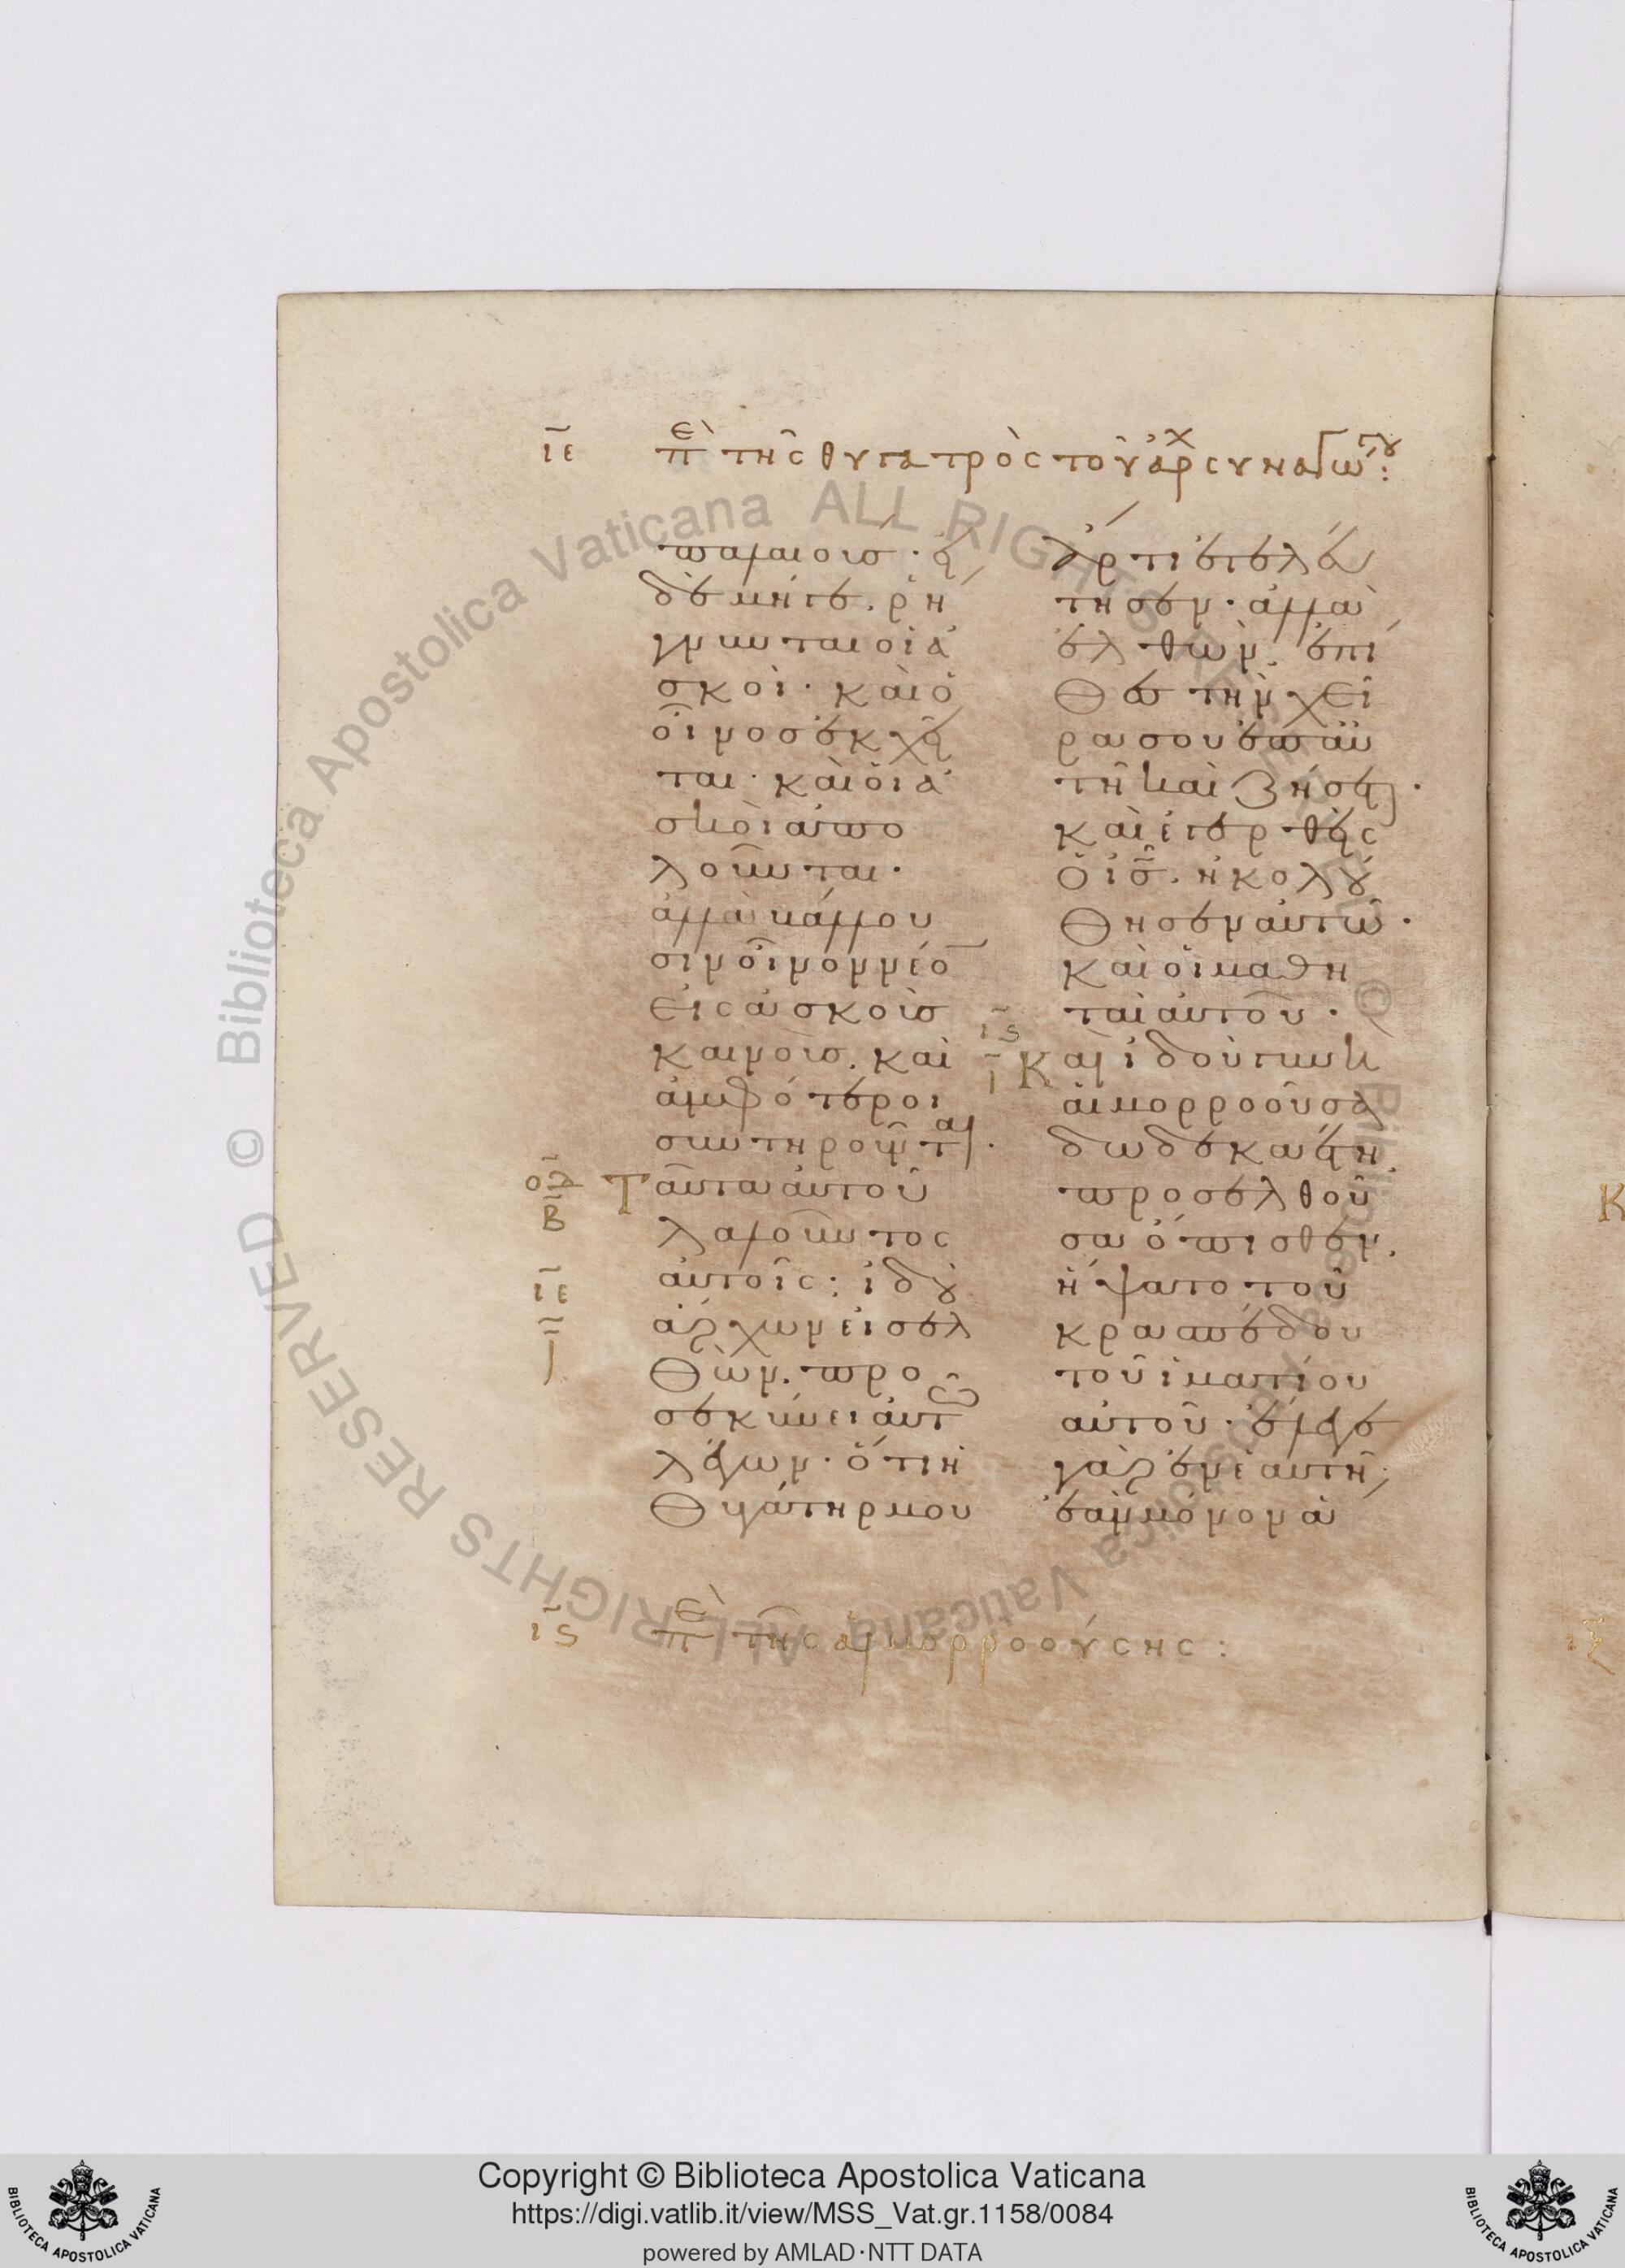 ιε
Περὶ τῆς θυγατρὸς τοῦ ἀρχ συναγώγου:
παλαιούς· εἰ
δὲ μήγε, ῥή
γνυνται οἱ ἀ
σκοί· καὶ ὁ
οἶνος ἐκχεῖ
ται· καὶ οἱ ἀ
σκοὶ ἀπο
λοῦνται·
ἀλλὰ βάλλου
σιν οἶνον νέο
εἰς ἀσκοὺς
καινούς, καὶ
ἀμφότεροι
συντηροῦνται·
οδ
β
Ταῦτα αὐτοῦ
λαλοῦντος
ιε
αὐτοῖς· ἰδοὺ
ἄρχων εἰσελ
θὼν, προ
σεκύνει αὐτῶ
λέγων· ὅτι ἡ
θυγάτηρ μου
ἄρτι ἐτελεύ
τησεν· ἀλλὰ
ἐλθὼν, ἐπί
θες τὴν χεῖ
ρα σου ἐπ' αὐ
τὴν καὶ ζήσεται·
καὶ ἐγερθεὶς
ὁ ις, ἠκολού
θησεν αὐτῶ·
καὶ οἱ μαθη
ταὶ αὐτοῦ·
ις
Καὶ ἰδοὺ γυνὴ
αἱμορροοῦσα
δώδεκα ἔτη,
προσελθοῦ
σα ὄπισθεν,
ἥψατο τοῦ
κρασπέδου
τοῦ ἱματίου
αὐτοῦ· ἔλεγε
γὰρ ἐν ἑαυτῆ,
ἐὰν μόνον ἅ
ις
Περὶ τῆς αἱμορροούσης:
Κ
ιζ
© Biblioteca Apostolica Vaticana ALL RIGHTS RESERVED
Copyright © Biblioteca Apostolica Vaticana
https://digi.vatlib.it/view/MSS_Vat.gr.1158/0084
powered by AMLAD·NTT DATA
BIBLIOTECA APOSTOLICA VATICANA
BIBLIOTECA APOSTOLICA VATICANA